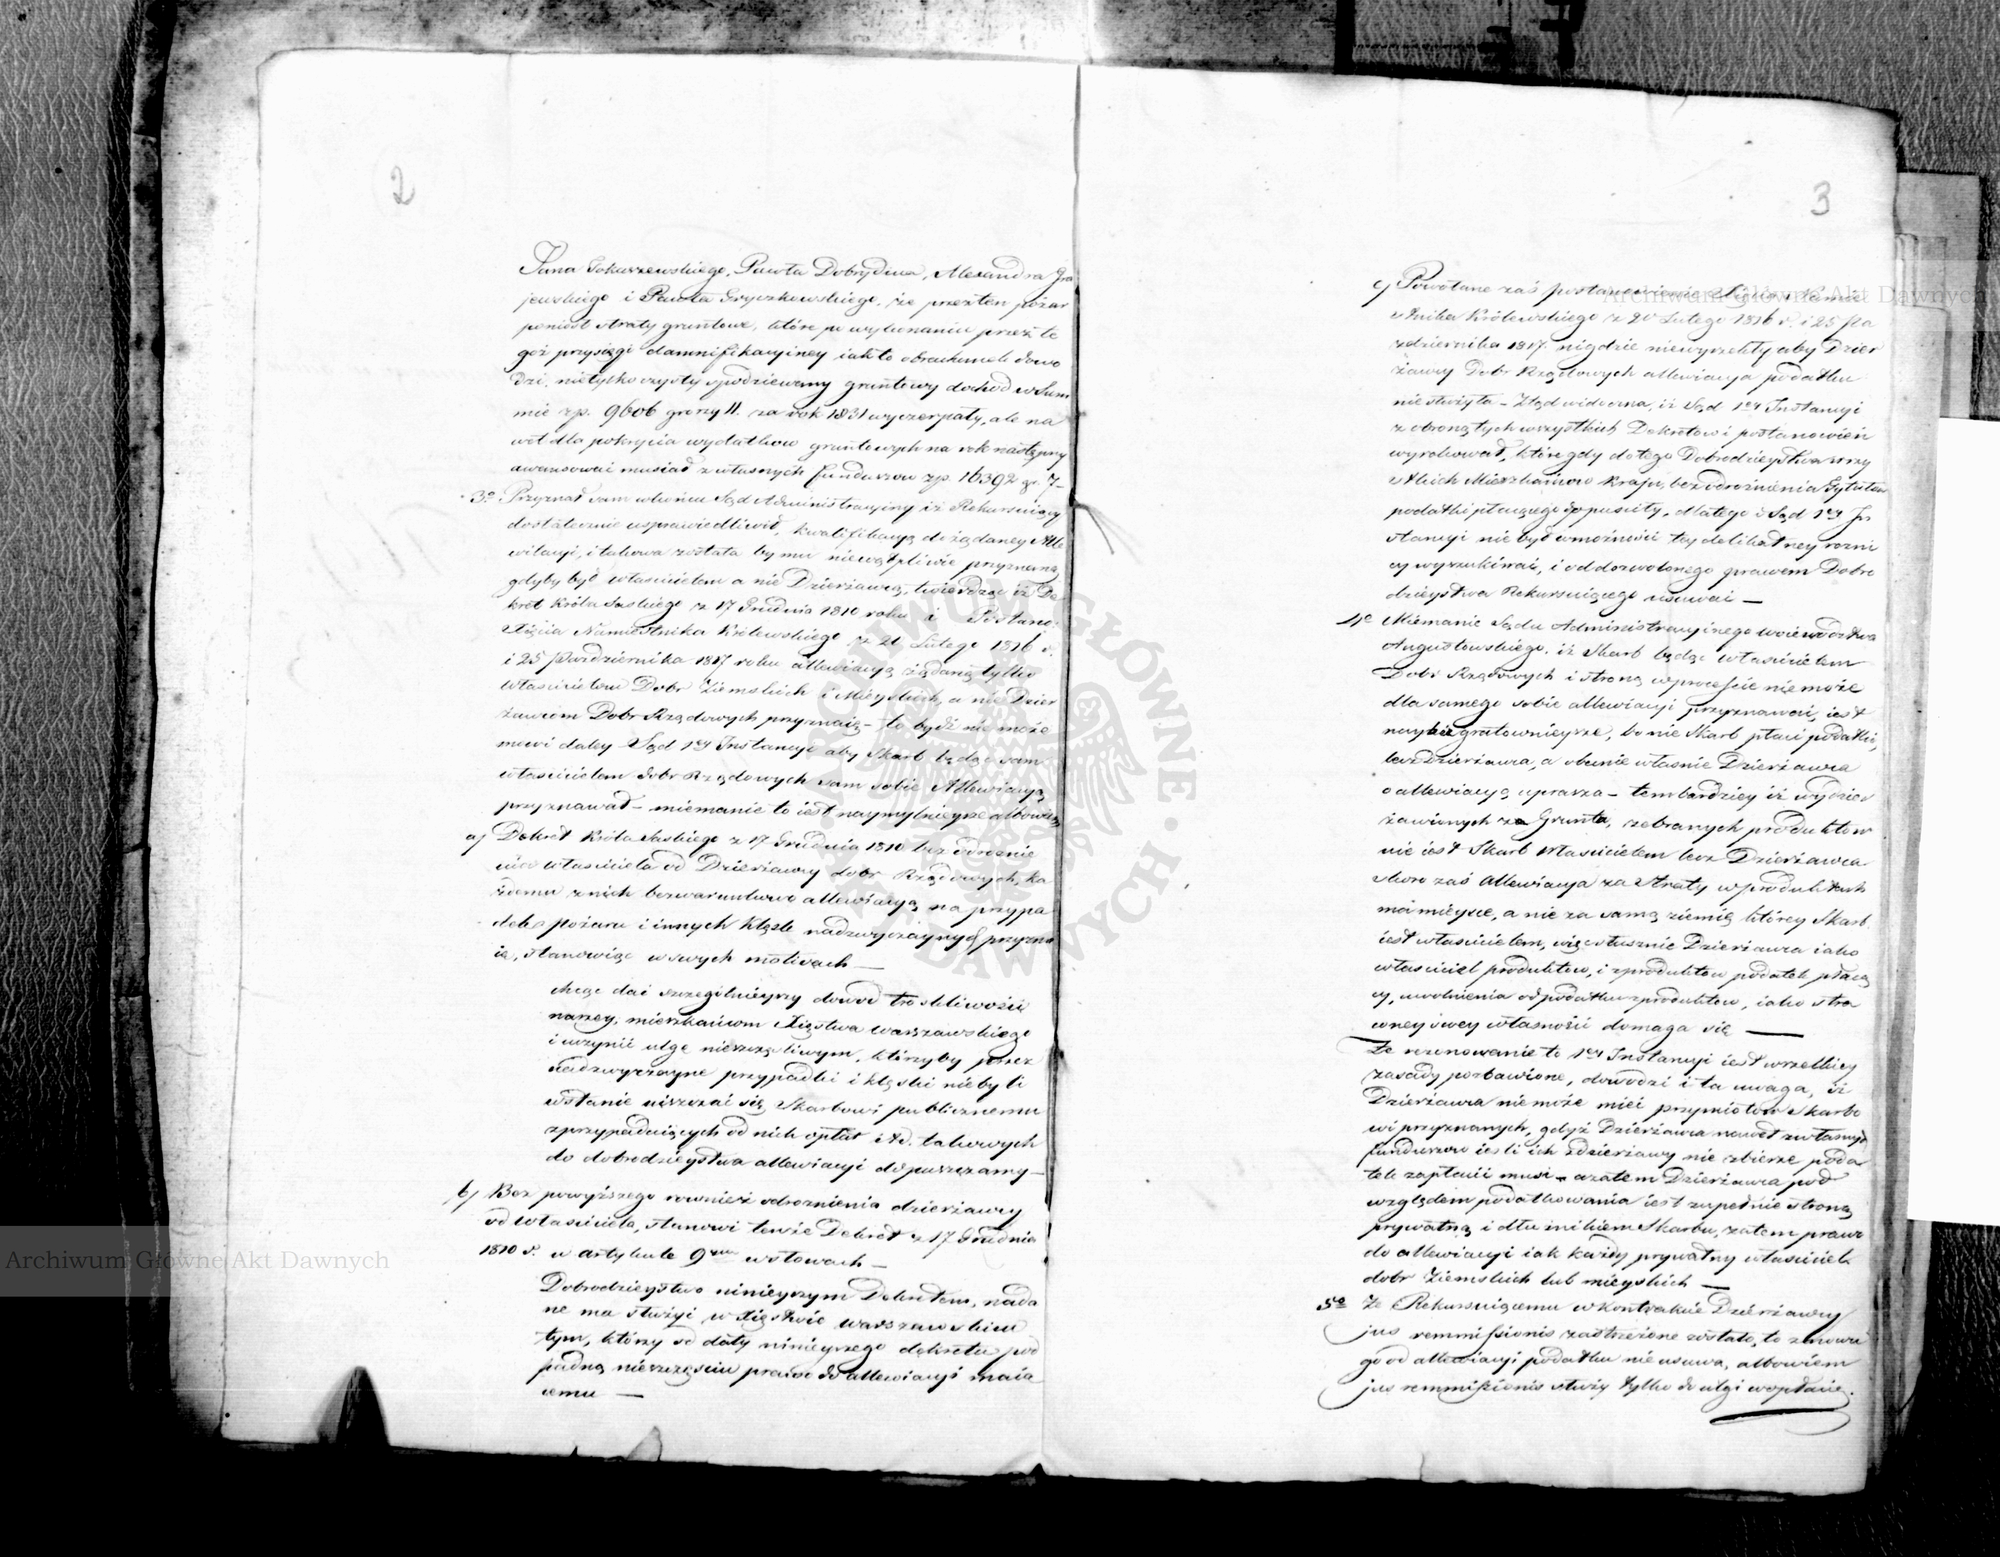 2
Jana Sokuszewskiego, Pawła Dobrydina, Alexandra Gra
jewskiego i Pawła Gryczkowskiego, że przez ten pożar
poniósł straty gruntowe, które po wykonaniu przez te
goż przysięgi damnifikacyiney iak to obrachunek dowo
dzi, nietylko czysty spodziewany gruntowy dochód w Sum
mie zp. 9606 groszy 11. za rok 1831 wyczerpały, ale na
wet dla pokrycia wydatków gruntowych na rok następny
awansować musiał z własnych funduszow zp. 16392 gr. 7 —
3o Przyznał sam wkońcu Sąd Administracyiny iż Rekursuiący
dostatecznie usprawiedliwił, kwalifikacyą do żądaney Alle
wiacyi, i takowa została by mu niewątpliwie przyznaną
gdyby był właścicielem a nie Dzierżawcą, twierdząc iż De
kret Króla Saskiego z 17 Grudnia 1810 roku i Postano:
Xięcia Namiestnika Królewskiego z 20 Lutego 1816 r.
i 25 Października 1817 roku allewiacyą żądaną tylko
właścicielom Dobr Ziemskich i Mieyskich, a nie Dzier
żawcom Dobr Rządowych przyznaią — to bydź nie może
mowi daley Sąd 1ey Instancyi aby Skarb będąc sam
właścicielem Dobr Rządowych sam sobie Allewiacyą
przyznawał — mniemanie to iest naymylnieysze albowiem
a) Dekret Króla Saskiego z 17 Grudnia 1810 bez odroznie
nia właściciela od Dzierżawcy Dobr Rządowych, ka
żdemu z nich bezwarunkowo allewiacyą na przypa
dek pożaru i innych klęsk nadzwyczaynych przyzna
ie, stanowiąc w swych motivach —
chcąc dać szczegilnieyszy dowod troskliwości
naszey, mieszkańcom Xięstwa warszawskiego
i uczynić ulgę nieszczęśliwym, którzyby przez
nadzwyczayne przypadki i klęski nie byli
wstanie uiszczać się Skarbowi publicznemu
z przypadaiących od nich opłat Ad. takowych
do dobrodzieystwa allewiacyi dopuszczamy —
b) Bez powyższego rownież odroznienia dzierżawcy
od właściciela, stanowi tenże Dekret z 17 Grudnia
1810 r. w artykule 9ym w słowach —
Dobrodzieystwo ninieyszym Dekretem, nada
ne ma służyć w Xięstwie warszawskiem
tym, którzy od daty ninieyszego dekretu pod
padną nieszczęściu prawo do allewiacyi maią
cemu —
3
c) Powołane zaś postanowienie Xięcia Namie
stnika Królewskiego z 20 Lutego 1816 r. i 25 Pa
zdziernika 1817. nigdzie niewyrzekły aby Dzier
żawcy Dobr Rządowych allewiacya podatku
nie służyła — Ztąd widoczna, iż Sąd 1ey Instancyi
z obroną tych wszystkich Dekretow i postanowień
wyrokował, które gdy do tego Dobrodzieystwa wszy
stkich Mieszkańcow Kraju, bez odroźnienia Tytułem
podatki płacącego dopuściły, dlatego i Sąd 1ey In
stancyi nie był w możności tey delikatney rozni
cy wyszukiwać, i od dozwolonego prawem Dobro
dzieystwa Rekursuiącego usuwać —
4o Mniemanie Sądu Administracyinego woiewodztwa
Augustowskiego, iż Skarb będąc właścicielem
Dobr Rządowych i stroną w processie nie może
dla samego sobie allewiacyi przyznawać, iest
naybezgruntownieysze, bo nie Skarb płaci podatki,
lecz Dzierżawca, a obecnie własnie Dzierżawca
o allewiacyą uprasza — tembardziey iż wydzier
żawionych Grunta, zebranych produktow
nie iest Skarb Właścicielem lecz Dzierżawca
skoro zaś Allewiacya za straty w produktach
ma mieysce, a nie za samą ziemię którey Skarb
iest właścicielem, więc słusznie Dzierżawca iako
właściciel produktow, i z produktow podatek płacą
cy, uwolnienia od podatku z produktow, iako stra
coney swey własności domaga się —
Że rozumowanie to 1ey Instancyi iest wszelkiey
zasady pozbawione, dowodzi i ta uwaga, iż
Dzierżawca nie może mieć przymiotow Skarbo
wi przyznanych, gdyż Dzierżawca nawet z własnych
funduszow iesli ich z dzierżawy nie zbierze poda
tek zapłacić musi — a zatem Dzierżawca pod
względem podatkowania iest zupełnie stroną
prywatną i dłużnikiem Skarbu, zatem prawo
do allewiacyi iak każdy prywatny właściciel
dobr Ziemskich lub mieyskich —
5to Że Rekursuiącemu w Kontrakcie Dzierżawy
jus remmissionis zastrzeżone zostało, to znowu
go od allewiacyi podatku nie usuwa, albowiem
jus remmissionis służy tylko do ulgi w opłacie.
Archiwum Główne Akt Dawnych
Archiwum Główne Akt Dawnych
ARCHIWUM GŁÓWNE · AKT DAWNYCH ·